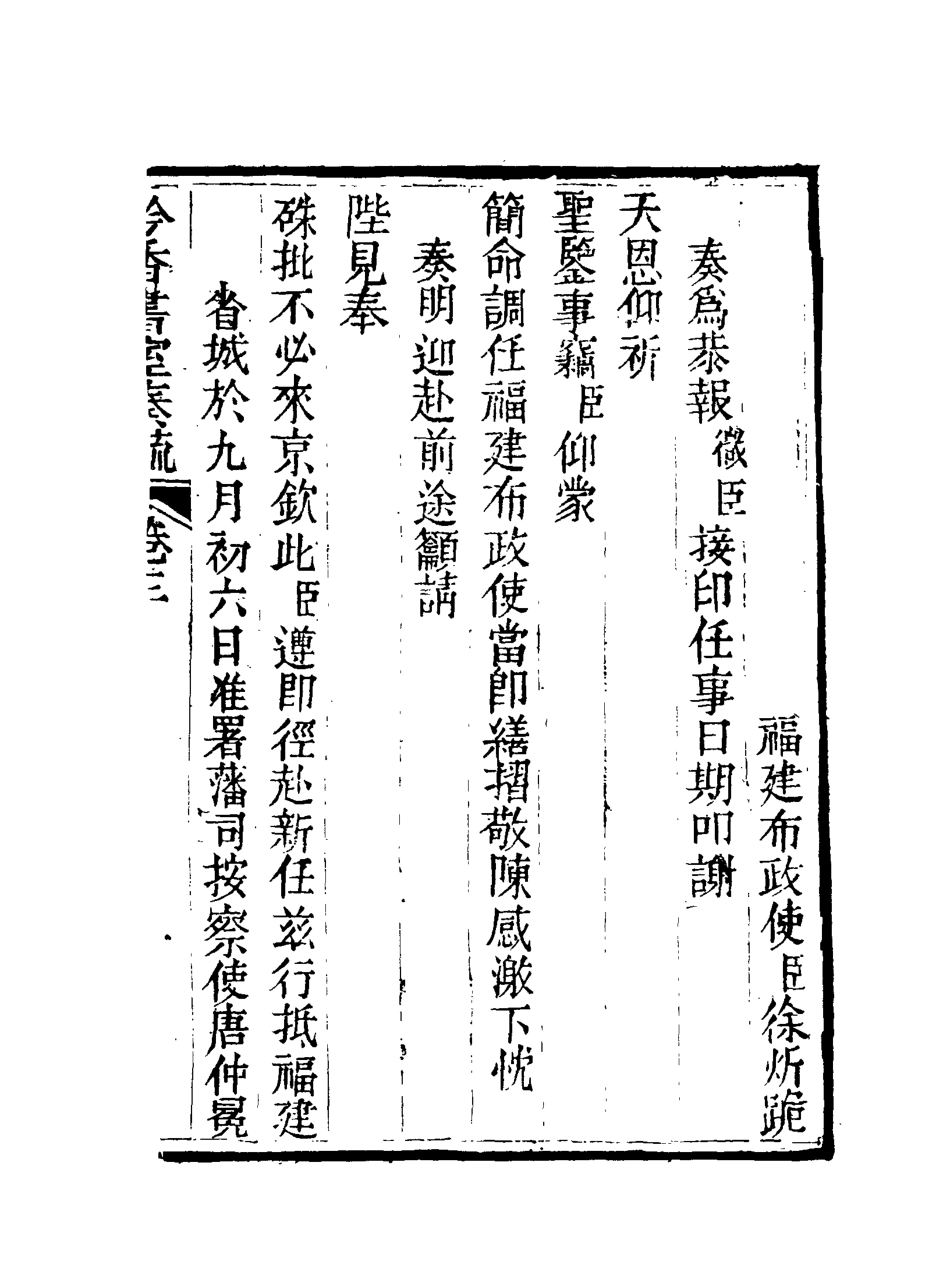 福建布政使臣徐炘跪
奏爲恭報微臣接印任事日期叩謝
天恩仰祈
聖鑒事竊臣仰蒙
簡命調任福建布政使當卽繕摺敬陳感激下忱
奏明迎赴前途籲請
陛見奉
硃批不必來京欽此臣遵卽徑赴新任茲行抵福建
省城於九月初六日准署藩司按察使唐仲冕
吟香書室奏疏 卷三